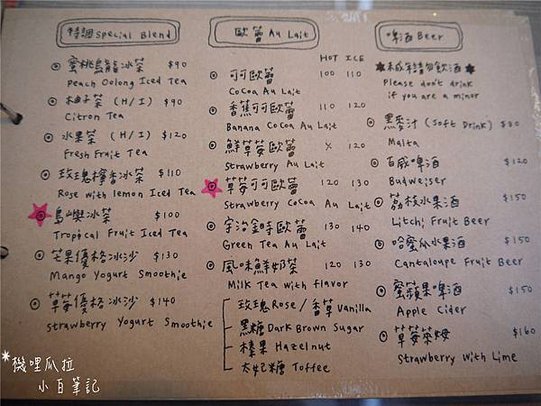 特調 Special Blend
蜜桃烏龍冰茶 $90
Peach Oolong Iced Tea
柚子茶 (H/I) $90
Citron Tea
水果茶 (H/I) $120
Fresh Fruit Tea
玫瑰檸香冰茶 $110
Rose with lemon Iced Tea
島嶼冰茶 $100
Tropical Fruit Iced Tea
芒果優格冰沙 $130
Mango Yogurt Smoothie
草莓優格冰沙 $140
strawberry Yogurt Smoothie
歐蕾 Au Lait
HOT ICE
可可歐蕾 100 110
CoCoa Au Lait
香蕉可可歐蕾 110 120
Banana CoCoa Au Lait
鮮草莓歐蕾 X 120
Strawberry Au Lait
草莓可可歐蕾 120 130
Strawberry CoCoa Au Lait
宇治金時歐蕾 130 140
Green Tea Au Lait
風味鮮奶茶 120 130
Milk Tea with flavor
玫瑰 Rose / 香草 Vanilla
黑糖 Dark Brown Sugar
榛果 Hazelnut
太妃糖 Toffee
啤酒 Beer
未成年請勿飲酒
Please don't drink
if you are a minor
黑麥汁 (Soft Drink) $80
Malta
百威啤酒 $120
Budweiser
荔枝水果酒 $150
Litchi Fruit Beer
哈蜜瓜水果酒 $150
Cantaloupe Fruit Beer
蜜蘋果啤酒 $150
Apple Cider
草莓萊姆 $160
Strawberry with Lime
*機哩瓜拉
小百筆記